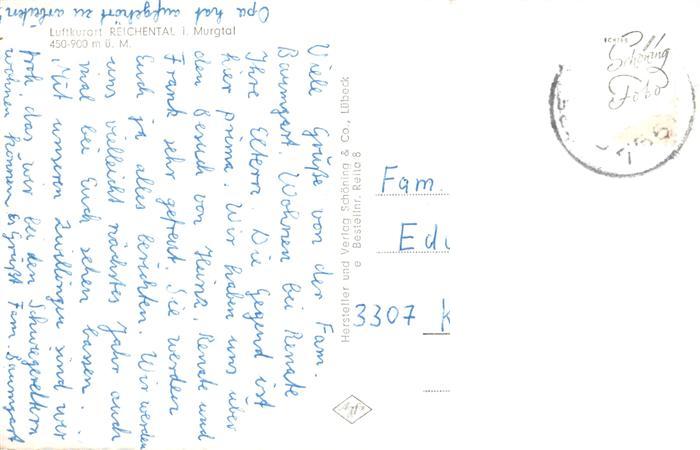 Opa hat aufgehört zu arbeiten!
Luftkurort REICHENTAL i. Murgtal
450-900 m ü. M.
Viele Grüße von der Fam.
Baumgart. Wohnen bei Renate
Ihre Eltern. Die Gegend ist
hier prima. Wir haben uns über
den Besuch von Heinz, Renate und
Frank sehr gefreut. Sie werden
Euch ja alles berichten. Wir werden
uns vielleicht nächstes Jahr auch
mal bei Euch sehen lassen.
Mit unseren Zwillingen sind wir
froh das wir bei den Schwiegereltern
wohnen können Es grüßt Fam. Baumgart
Hersteller und Verlag Schöning & Co., Lübeck
e Bestellnr. Reita 8
Agfa
Fam.
Edu
3307 K
ECHTES
Schöning
Foto